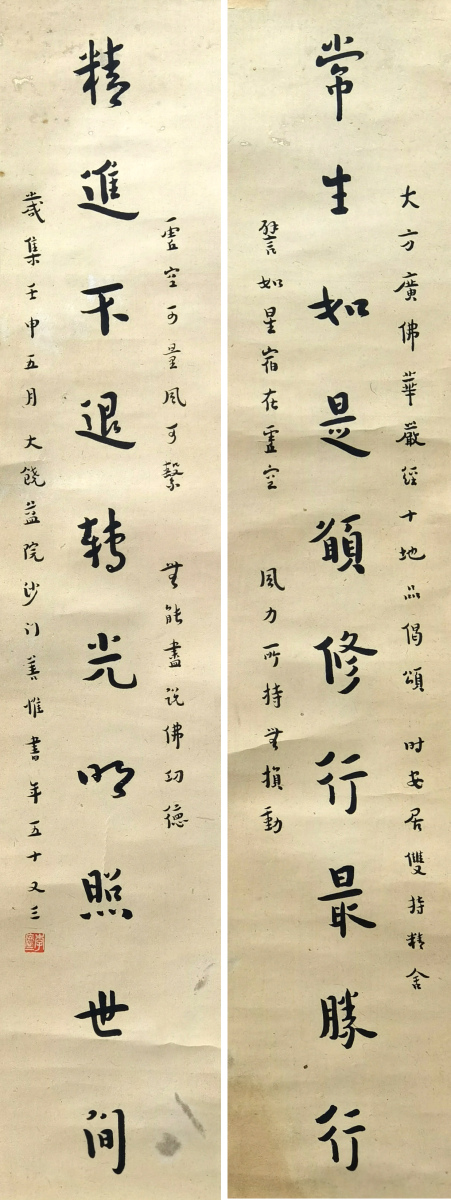 大方廣佛華嚴經十地品偈頌 时安居雙持精舍
常生如是願修行最勝行
譬如星宿在虛空 風力所持無損動
虛空可量風可繫 無能盡说佛功德
精進不退轉光明照世间
歲集壬申五月大饒益院沙门善惟書年五十又三